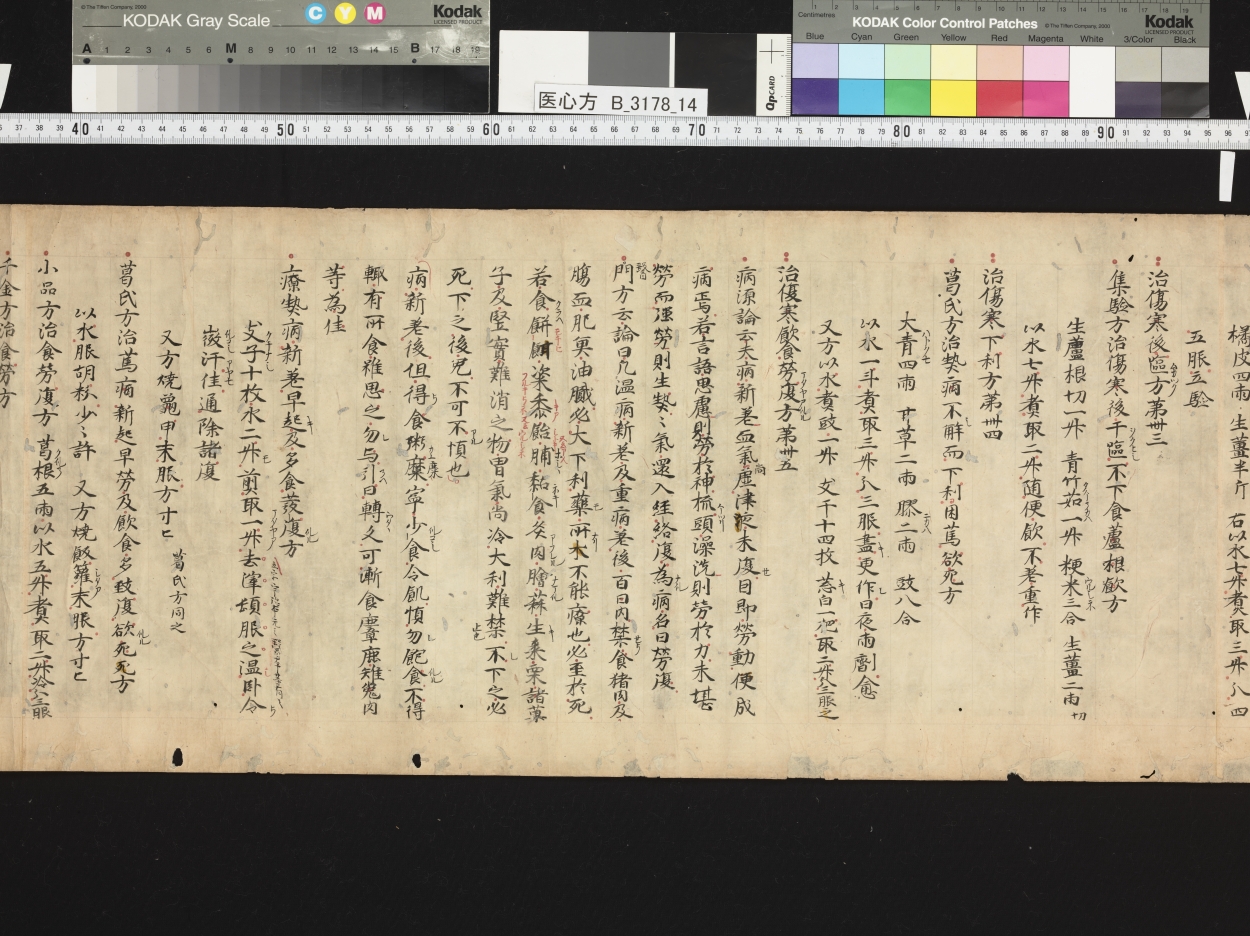 KODAK Gray Scale
© The Tiffen Company, 2000
C Y M
Kodak
LICENSED PRODUCT
A 1 2 3 4 5 6 M 8 9 10 11 12 13 14 15 B 17 18 19
医心方 B_3178_14
QPCARD
Centimetres
KODAK Color Control Patches
© The Tiffen Company, 2000
Kodak
LICENSED PRODUCT
Blue Cyan Green Yellow Red Magenta White 3/Color Black
37 38 39 40 41 42 43 44 45 46 47 48 49 50 51 52 53 54 55 56 57 58 59 60 61 62 63 64 65 66 67 68 69 70 71 72 73 74 75 76 77 78 79 80 81 82 83 84 85 86 87 88 89 90 91 92 93 94 95 96
橘皮四両 生薑半斤 右以水七升煮取三升八四
五服五驗
治傷寒後嘔方第卌三
集驗方治傷寒後干嘔不下食蘆根飲方
生蘆根切一升 青竹茹一升 粳米三合 生薑二両切
以水七升煮取二升随便飲不差重作
治傷寒下利方第卌四
葛氏方治熱病不解而下利困篤欲死方
大青四両 甘草二両 膠二両 豉八合
以水一斗煮取三升八三服盡更作日夜両劑愈
又方以水煮豉一升 支子十四枚 葱白一把取二升分三服之
治傷寒飲食勞復方第卌五
病源論云夫病新差血氣尚虚津液未復因即勞動便成
病焉若言語思慮則勞於神梳頭澡洗則勞於力未堪
勞而强勞則生熱〻氣還入經絡復為病名曰勞復
醫門方云論曰凡温病新差及重病差後百日内禁食猪肉及
腸血肥魚油膩必大下利藥所不能療也必至於死
若食餅䴺粢黍飴脯黏食炙肉膾蒜生棗栗諸菓
子及堅實難消之物胃氣尚冷大利難禁不下之必
死下之後危不可不慎也
病新差後但得食粥糜寧少食令飢慎勿飽食不得
輙有所食雖思之勿与引日轉久可漸食麞鹿雉兔肉
等為佳
療熱病新差早起及多食發復方
支子十枚水二升煎取一升去滓頓服之温臥令
微汗佳通除諸復
又方燒鼈甲末服方寸匕 葛氏方同之
葛氏方治篤病新起早勞及飲食多致復欲死方
以水服胡粉少〻許 又方燒飯籮末服方寸匕
小品方治食勞復方 葛根五両以水五升煮取二升分三服
千金方治食勞方